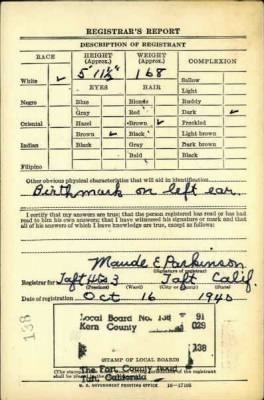 REGISTRAR'S REPORT
DESCRIPTION OF REGISTRANT
RACE HEIGHT (Approx.) WEIGHT (Approx.) COMPLEXION
5' 11½" 168
White ✓ Sallow
EYES HAIR Light
Negro Blue Blonde Ruddy
Gray Red Dark ✓
Oriental Hazel Brown ✓ Freckled
Brown ✓ Black Light brown
Indian Black Gray Dark brown
Bald Black
Filipino
Other obvious physical characteristics that will aid in identification
Birthmark on left ear.
I certify that my answers are true; that the person registered has read or has had
read to him his own answers; that I have witnessed his signature or mark and that
all of his answers of which I have knowledge are true, except as follows:
Maude E Parkinson
(Signature of registrar)
Registrar for Taft Hts 3 Taft Calif.
(Precinct) (Ward) (City or county) (State)
Date of registration Oct 16 1940
138
Local Board No. 138 91
Kern County 029
138
Taft, California
STAMP OF LOCAL BOARD
U. S. GOVERNMENT PRINTING OFFICE 16—17105